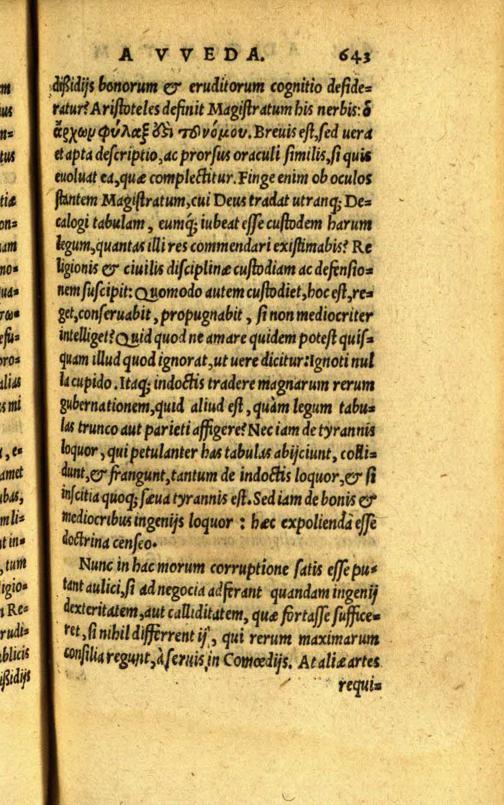 A VVEDA. 643
dißidijs bonorum & eruditorum cognitio deside=
ratur? Aristoteles definit Magistratum his nerbis: ὁ
ἄρχωμ φύλαξ ὅδι τῶνόμου. Breuis est, sed uera
et apta descriptio, ac prorsus oraculi similis, si quis
euoluat ea, quæ complectitur. Finge enim ob oculos
stantem Magistratum, cui Deus tradat utranq; De=
calogi tabulam, eumq́; iubeat esse custodem harum
legum, quantas illi res commendari existimabis? Re
ligionis & ciuilis disciplinæ custodiam ac defensio=
nem suscipit: Quomodo autem custodiet, hoc est, re=
get, conseruabit, propugnabit, si non mediocriter
intelliget? Quid quod ne amare quidem potest quis=
quam illud quod ignorat, ut uere dicitur: Ignoti nul
la cupido. Itaq; indoctis tradere magnarum rerum
gubernationem, quid aliud est, quàm legum tabu=
las trunco aut parieti affigere? Nec iam de tyrannis
loquor, qui petulanter has tabulas abijciunt, colli=
dunt, & frangunt, tantum de indoctis loquor, & si
inscitia quoq; sæua tyrannis est. Sed iam de bonis &
mediocribus ingenijs loquor : hæc expolienda esse
doctrina censeo.
Nunc in hac morum corruptione satis esse pu=
tant aulici, si ad negocia adferant quandam ingenij
dexteritatem, aut calliditatem, quæ fortasse suffice=
ret, si nihil differrent ij, qui rerum maximarum
consilia regunt, à seruis in Comœdijs. At aliæ artes
requi=